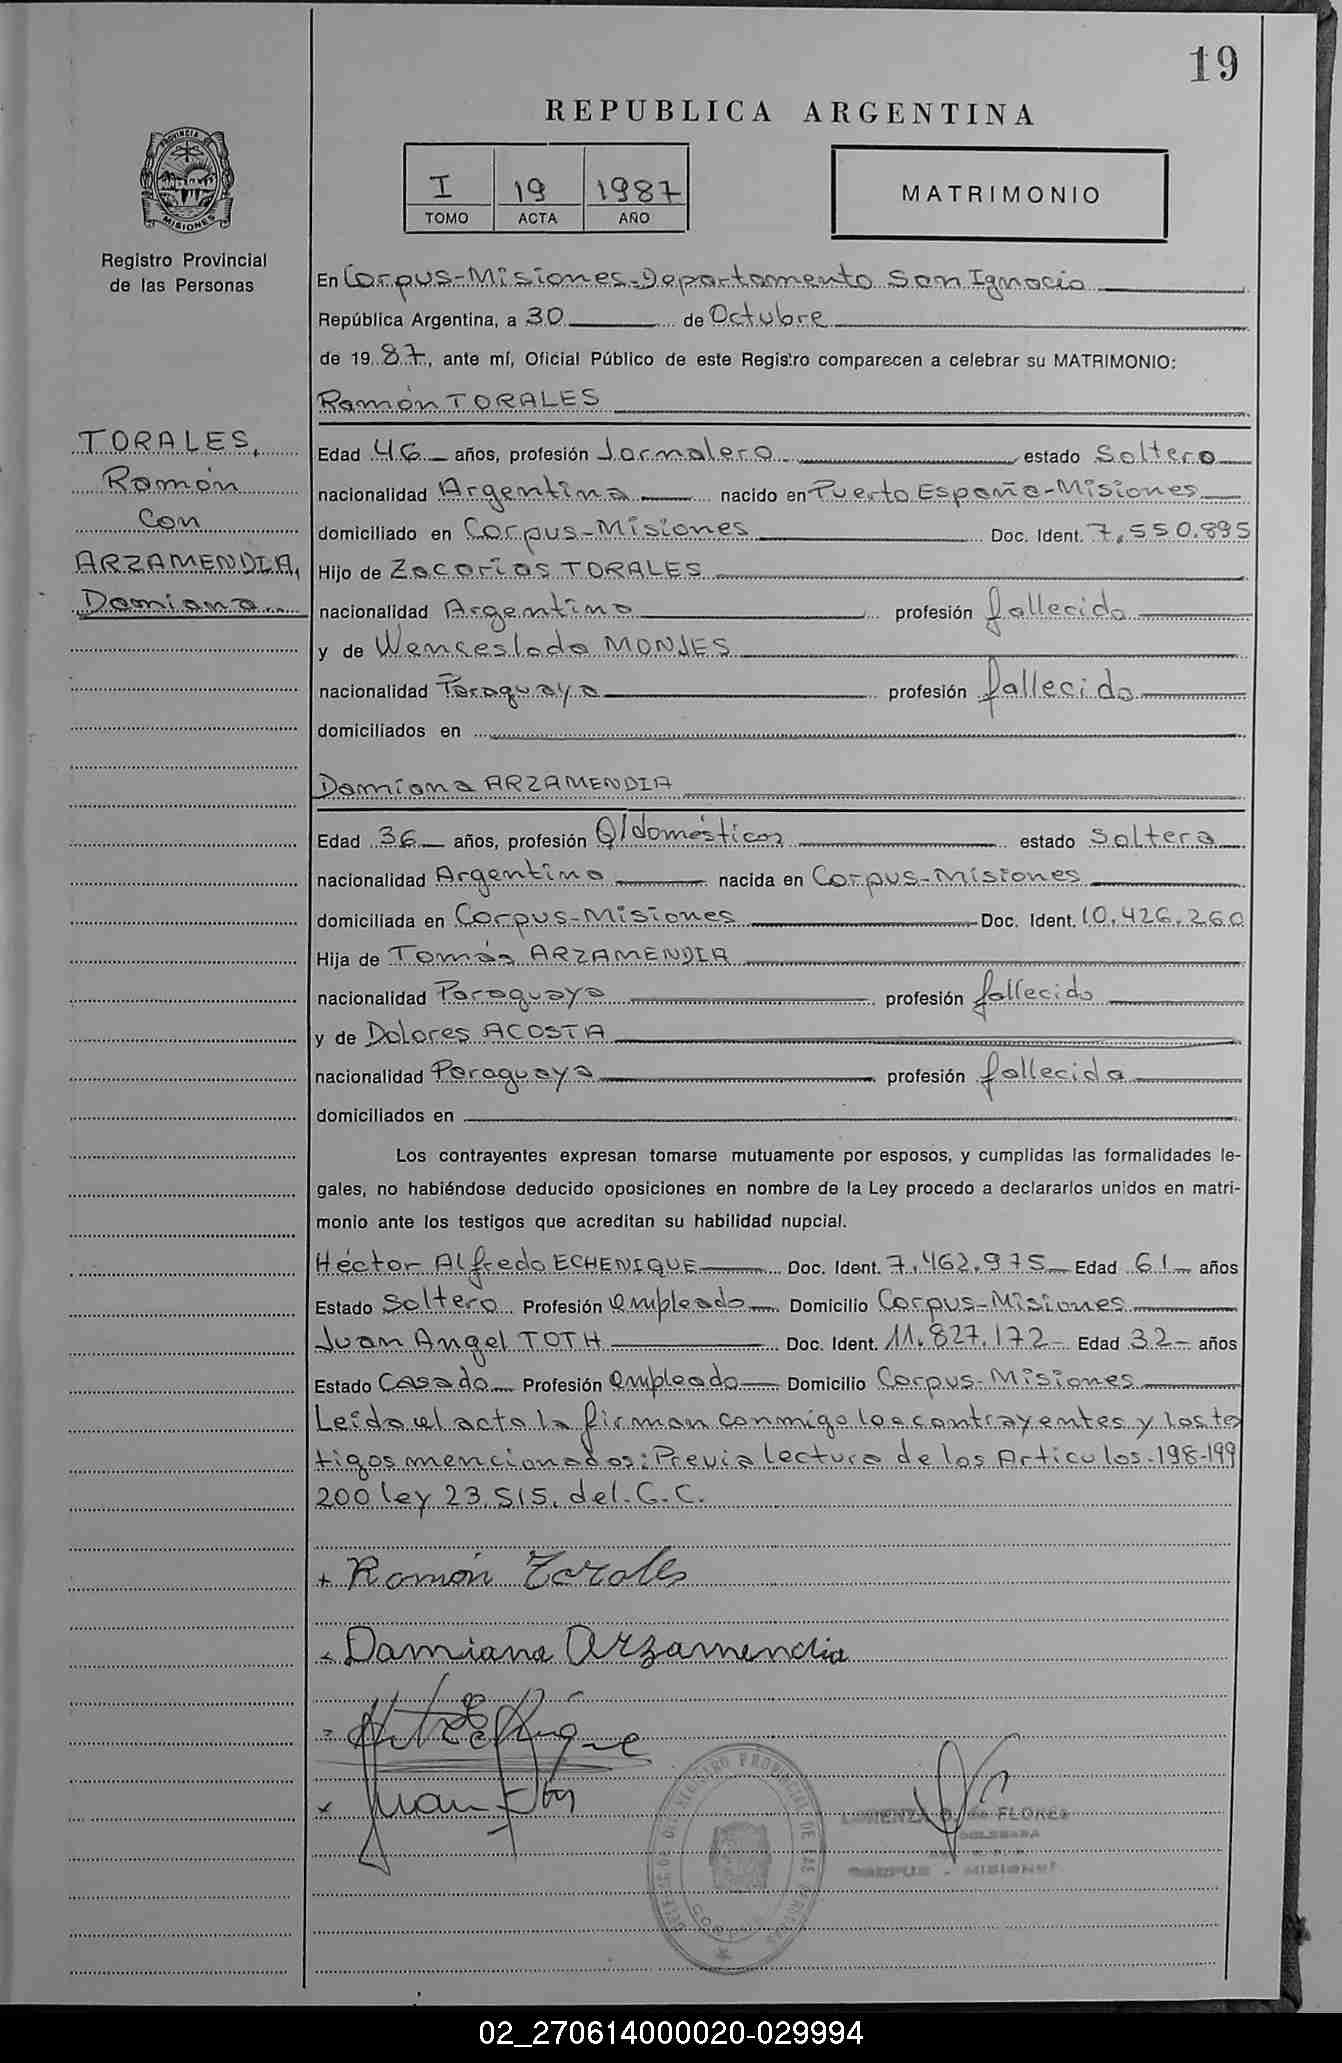 19
REPUBLICA ARGENTINA
PROVINCIA DE
MISIONES
I 19 1987
TOMO ACTA AÑO
MATRIMONIO
Registro Provincial
de las Personas
En Corpus-Misiones-Departamento San Ignacio
República Argentina, a 30 de Octubre
de 19 87, ante mí, Oficial Público de este Registro comparecen a celebrar su MATRIMONIO:
Ramón TORALES
TORALES,
Ramón
Con
ARZAMENDIA,
Damiana
Edad 46 años, profesión Jornalero estado Soltero
nacionalidad Argentina nacido en Puerto España-Misiones
domiciliado en Corpus-Misiones Doc. Ident. 7.550.895
Hijo de Zacarías TORALES
nacionalidad Argentino profesión fallecido
y de Wenceslada MONJES
nacionalidad Paraguaya profesión fallecida
domiciliados en
Damiana ARZAMENDIA
Edad 36 años, profesión Q/domésticos estado Soltera
nacionalidad Argentina nacida en Corpus-Misiones
domiciliada en Corpus-Misiones Doc. Ident. 10.426.260
Hija de Tomás ARZAMENDIA
nacionalidad Paraguaya profesión fallecido
y de Dolores ACOSTA
nacionalidad Paraguaya profesión fallecida
domiciliados en
Los contrayentes expresan tomarse mutuamente por esposos, y cumplidas las formalidades le-
gales, no habiéndose deducido oposiciones en nombre de la Ley procedo a declararlos unidos en matri-
monio ante los testigos que acreditan su habilidad nupcial.
Héctor Alfredo ECHENIQUE Doc. Ident. 7.462.975 Edad 61 años
Estado Soltero Profesión empleado Domicilio Corpus-Misiones
Juan Angel TOTH Doc. Ident. 11.827.172 Edad 32 años
Estado Casado Profesión empleado Domicilio Corpus-Misiones
Leida el acta la firman conmigo los contrayentes y los tes
tigos mencionados: Previa lectura de los Articulos-198-199
200 ley 23.515. del C.C.
+ Ramón Torales
Damiana Arzamendia
Juan
LORENZA D. de FLORES
DELEGADA
CORPUS - MISIONES
REGISTRO PROVINCIAL DE LAS PERSONAS
02_270614000020-029994